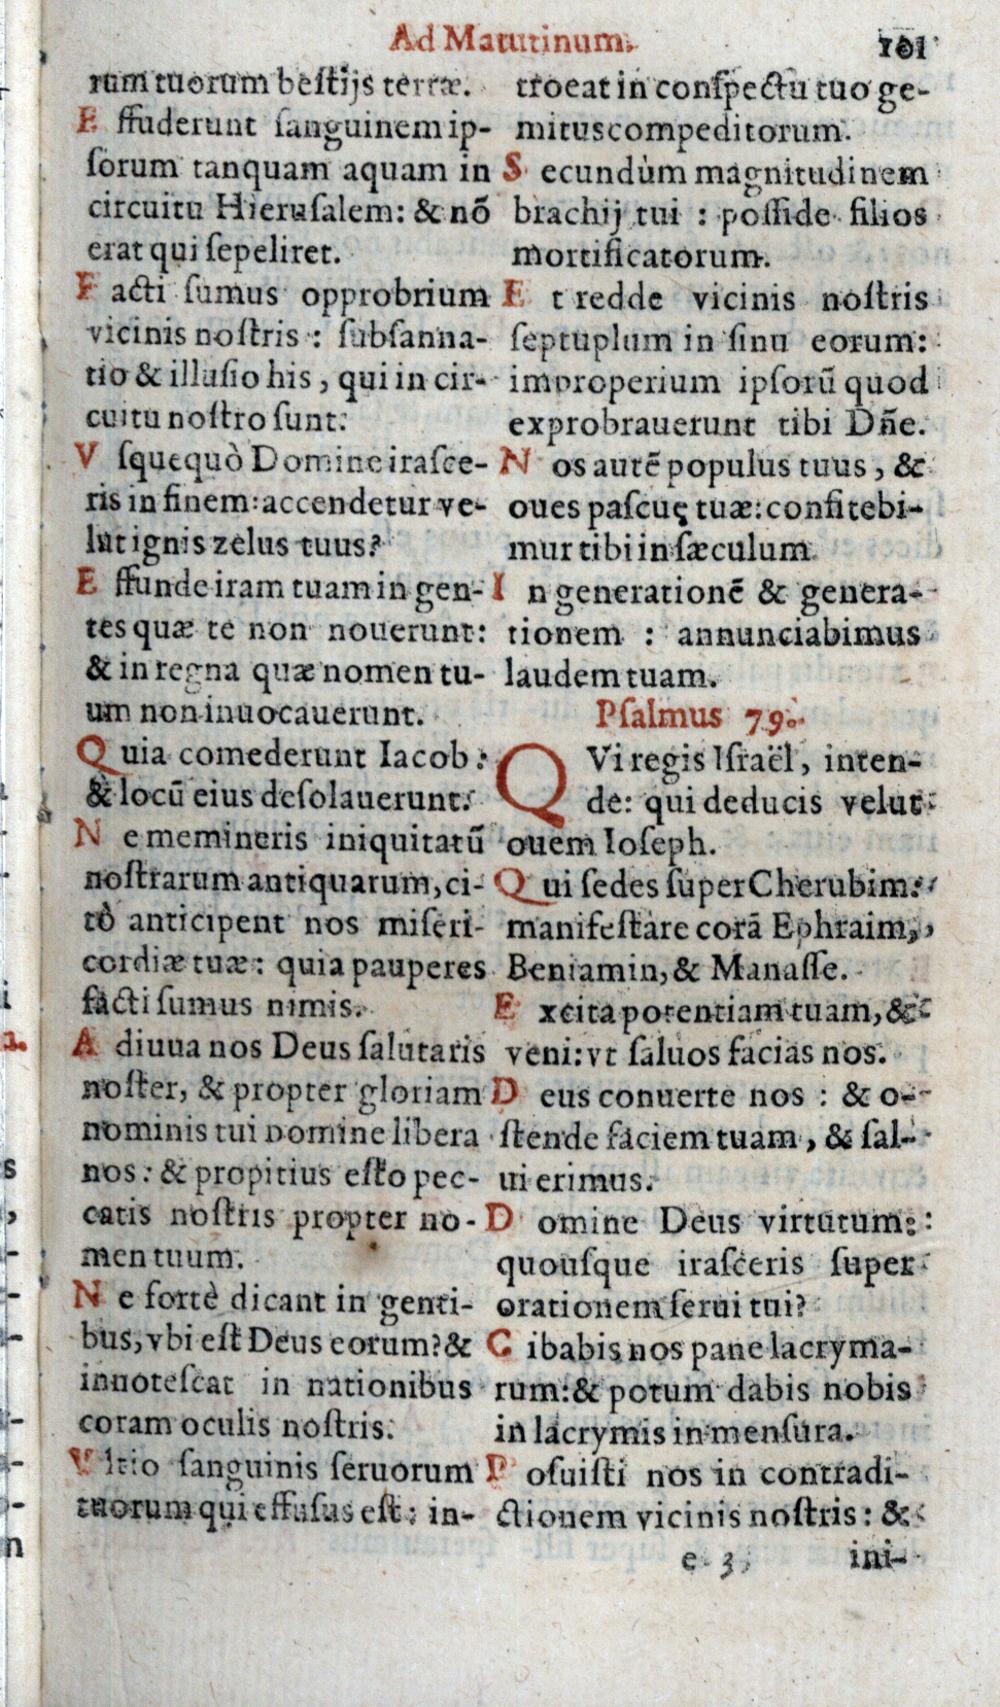 Ad Matutinum.
101
rum tuorum beſtijs terræ.
E ffuderunt ſanguinem ip-
ſorum tanquam aquam in
circuitu Hieruſalem: & nõ
erat qui ſepeliret.
F acti ſumus opprobrium
vicinis noſtris : ſubſanna-
tio & illuſio his, qui in cir-
cuitu noſtro ſunt.
V ſquequò Domine iraſce-
ris in finem: accendetur ve-
lut ignis zelus tuus?
E ffunde iram tuam in gen-
tes quæ te non nouerunt:
& in regna quæ nomen tu-
um non inuocauerunt.
Q uia comederunt Iacob:
& locũ eius deſolauerunt.
N e memineris iniquitatũ
noſtrarum antiquarum, ci-
tò anticipent nos miſeri-
cordiæ tuæ: quia pauperes
facti ſumus nimis.
A diuua nos Deus ſalutaris
noſter, & propter gloriam
nominis tui domine libera
nos: & propitius eſto pec-
catis noſtris propter no-
men tuum.
N e fortè dicant in genti-
bus, vbi eſt Deus eorum? &
innoteſcat in nationibus
coram oculis noſtris.
V ltio ſanguinis ſeruorum
tuorum qui effuſus eſt: in-
troeat in conſpectu tuo ge-
mitus compeditorum.
S ecundùm magnitudinem
brachij tui : poſſide filios
mortificatorum.
E t redde vicinis noſtris
ſeptuplum in ſinu eorum:
improperium ipſorũ quod
exprobrauerunt tibi Dñe.
N os autẽ populus tuus, &
oues paſcuę tuæ: confitebi-
mur tibi in ſæculum.
I n generationẽ & genera-
tionem : annunciabimus
laudem tuam.
Pſalmus 79.
Q Vi regis Iſraël, inten-
de: qui deducis velut
ouem Ioſeph.
Q ui ſedes ſuper Cherubim:
manifeſtare corã Ephraim,
Beniamin, & Manaſſe.
E xcita potentiam tuam, &
veni: vt ſaluos facias nos.
D eus conuerte nos : & o-
ſtende faciem tuam, & ſal-
ui erimus.
D omine Deus virtutum:
quouſque iraſceris ſuper
orationem ſerui tui?
C ibabis nos pane lacryma-
rum: & potum dabis nobis
in lacrymis in menſura.
P oſuiſti nos in contradi-
ctionem vicinis noſtris: &
e 3
ini-